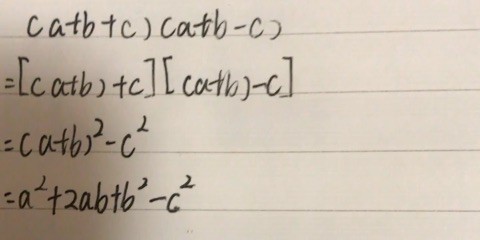 (a+b+c)(a+b-c)
=[(a+b)+c][(a+b)-c]
=(a+b)²-c²
=a²+2ab+b²-c²